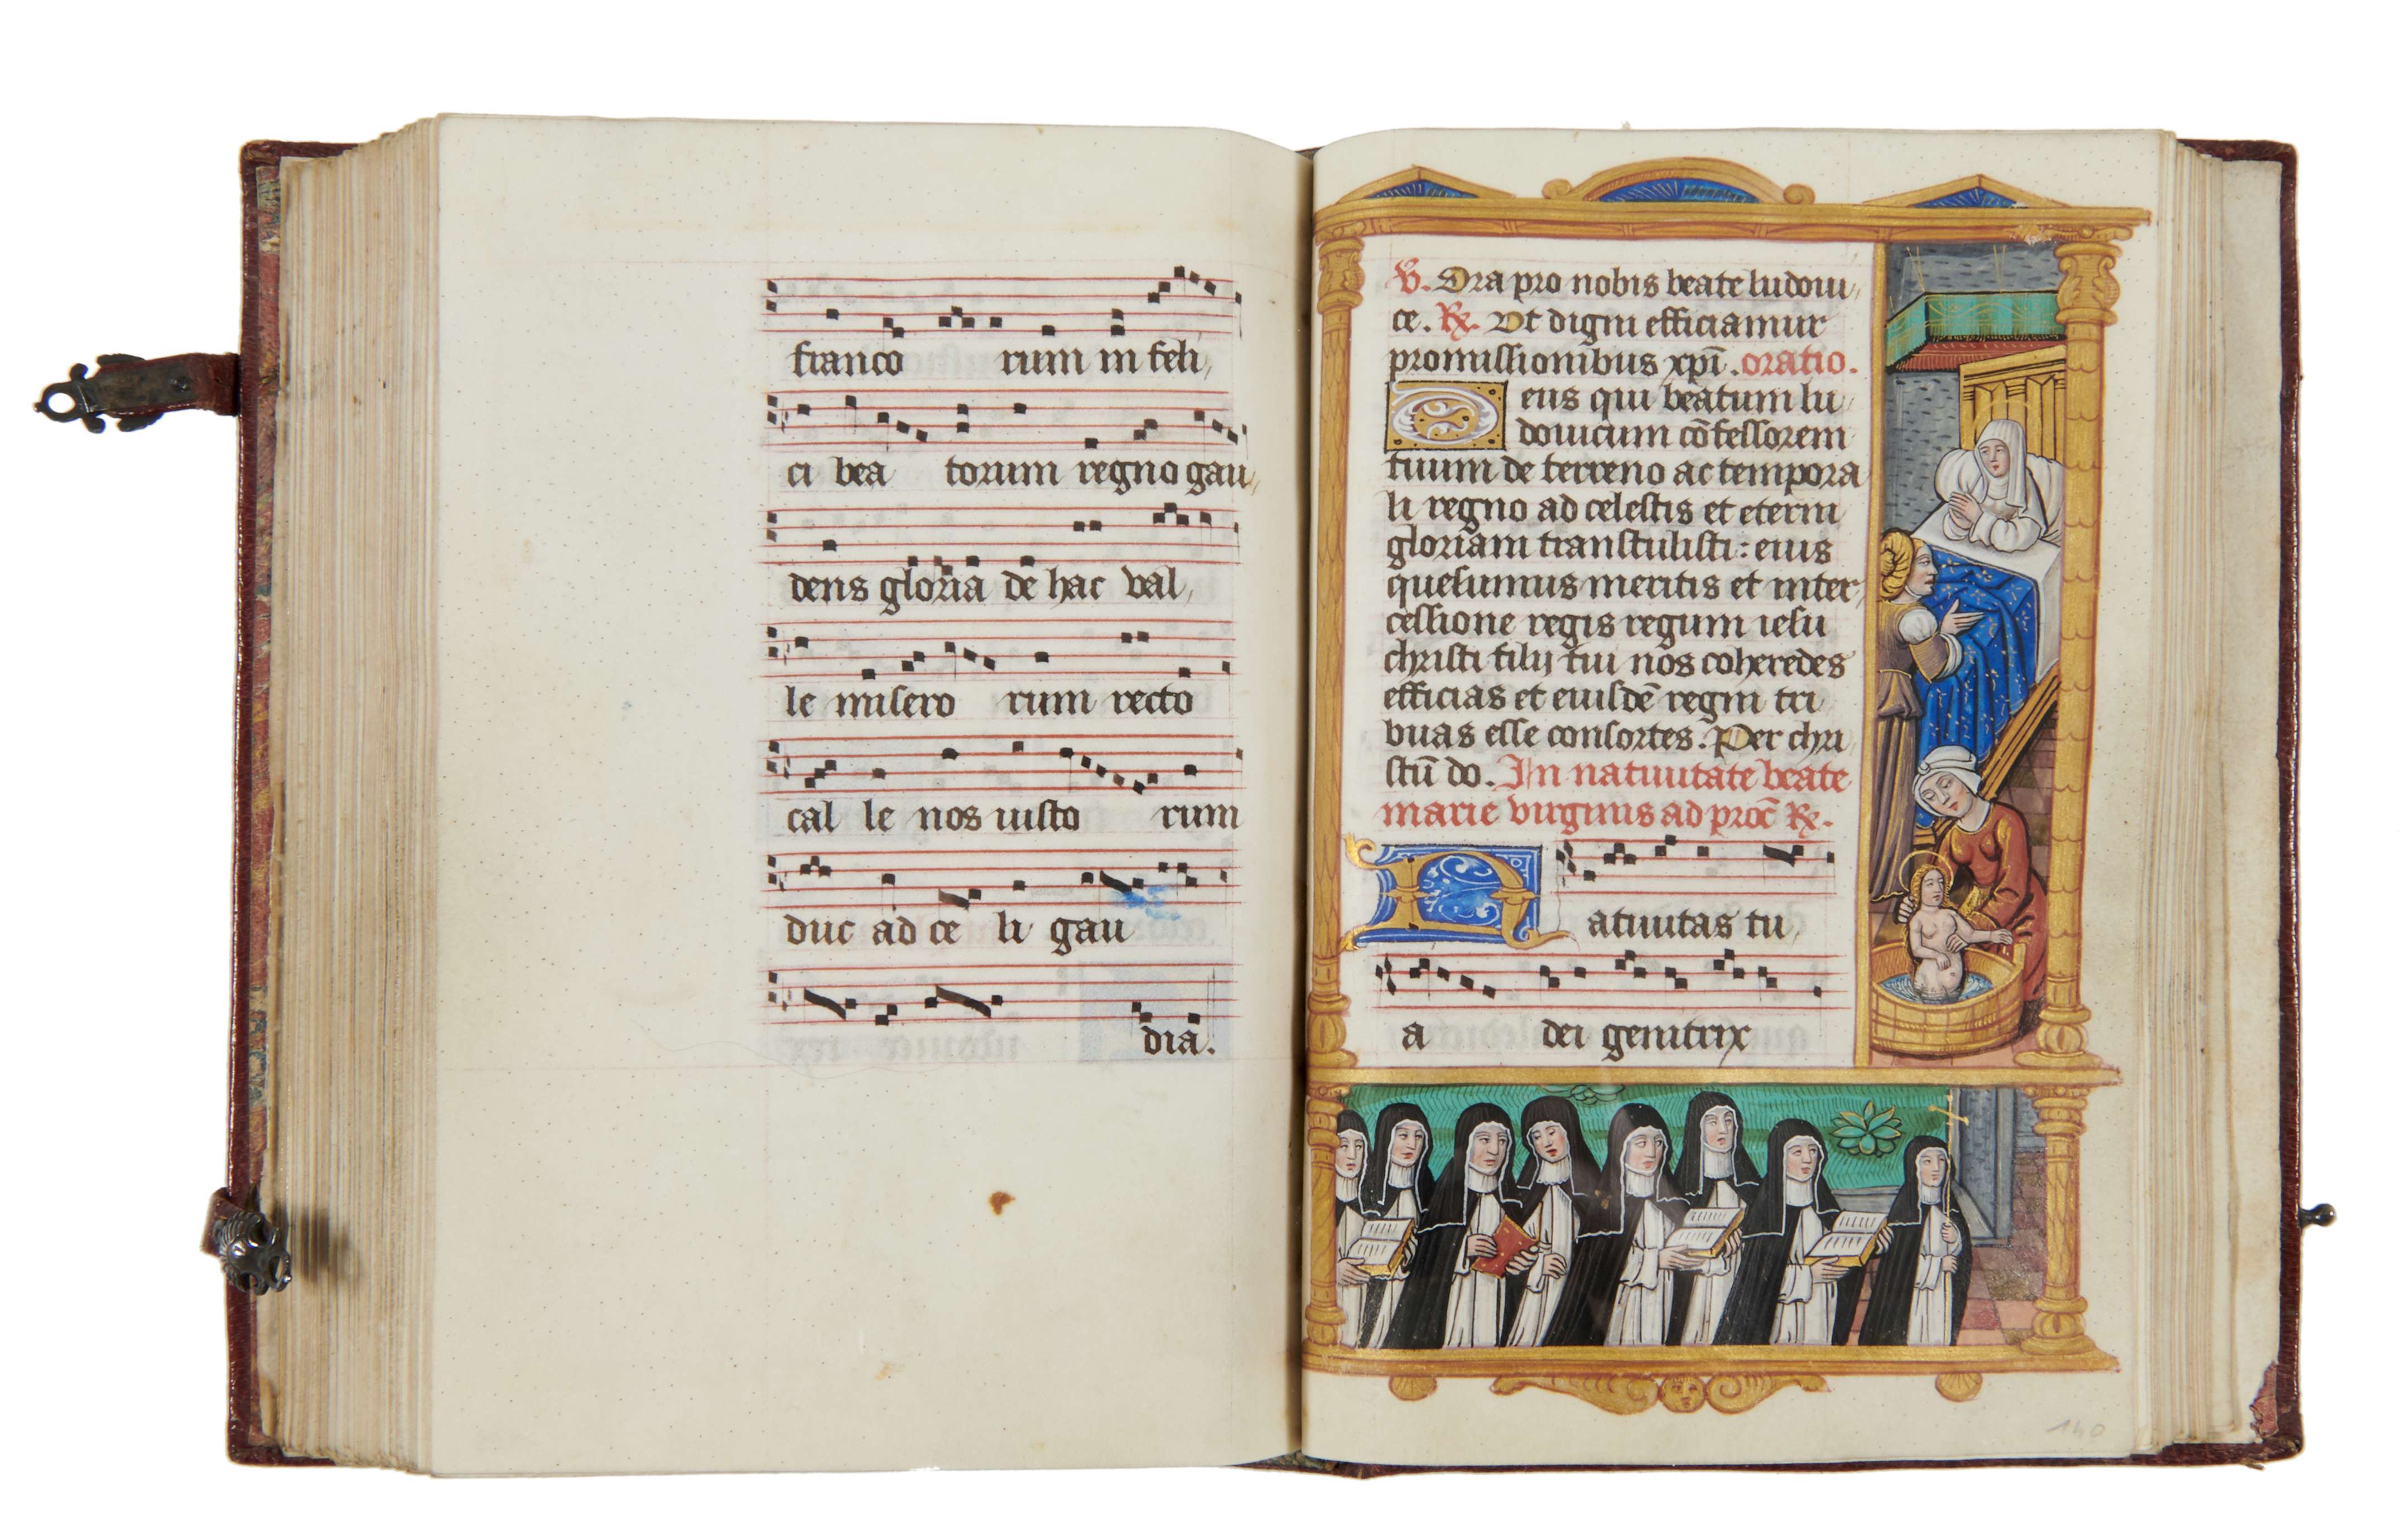 franco rum in feli,
ci bea torum regno gau,
dens gloria de hac val,
le misero rum recto
cal le nos iusto rum
duc ad ce li gau
dia.
V. Ora pro nobis beate ludoui,
ce. R. Vt digni efficiamur
promissionibus xpī. oratio.
Deus qui beatum lu
douicum cōfessorem
tuum de terreno ac tempora
li regno ad celestis et eterni
gloriam transtulisti: eius
quesumus meritis et inter,
cessione regis regum iesu
christi filij tui nos coheredes
efficias et eiusdē regni tri
buas esse consortes. Per chri
stū do. In natiuitate beate
marie virginis ad proc̄ R.
Natiuitas tu,
a dei genitrix
140